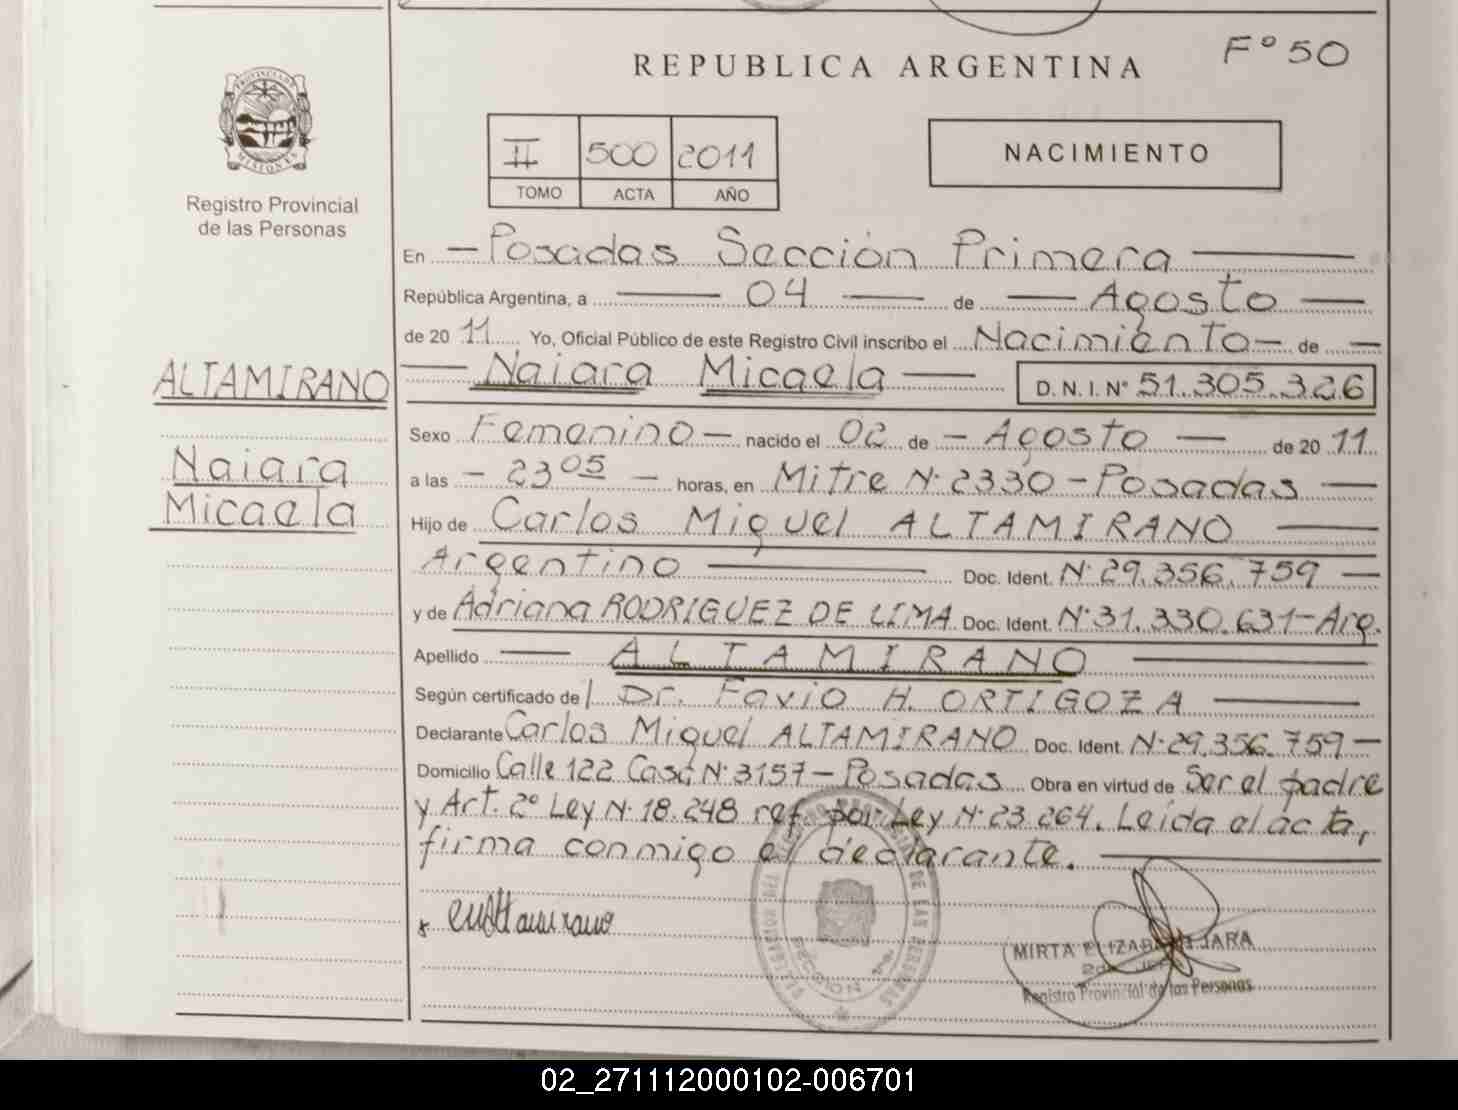 F° 50
REPUBLICA ARGENTINA
PROVINCIA DE
MISIONES
Registro Provincial
de las Personas
II 500 2011
TOMO ACTA AÑO
NACIMIENTO
En — Posadas Sección Primera —
República Argentina, a — 04 — de — Agosto —
de 20 11 Yo, Oficial Público de este Registro Civil inscribo el Nacimiento — de —
— Naiara Micaela — D. N. I. N° 51.305.326
ALTAMIRANO
Naiara
Micaela
Sexo Femenino — nacido el 02 de — Agosto — de 20 11
a las — 23 05 — horas, en Mitre N° 2330 — Posadas —
Hijo de Carlos Miguel ALTAMIRANO —
Argentino — Doc. Ident. N° 29.356.759 —
y de Adriana RODRIGUEZ DE LIMA Doc. Ident. N° 31.330.631 — Arg.
Apellido — ALTAMIRANO —
Según certificado de l Dr. Favio H. ORTIGOZA —
Declarante Carlos Miguel ALTAMIRANO Doc. Ident. N° 29.356.759 —
Domicilio Calle 122 Casa N° 3157 — Posadas Obra en virtud de Ser el padre
y Art. 2° Ley N° 18.248 ref. por Ley N° 23.264. Leída el acta,
firma conmigo el declarante. —
MIRTA ELIZABETH JARA
Registro Provincial de las Personas
DE LAS PERSONAS
SECCION
02_271112000102-006701